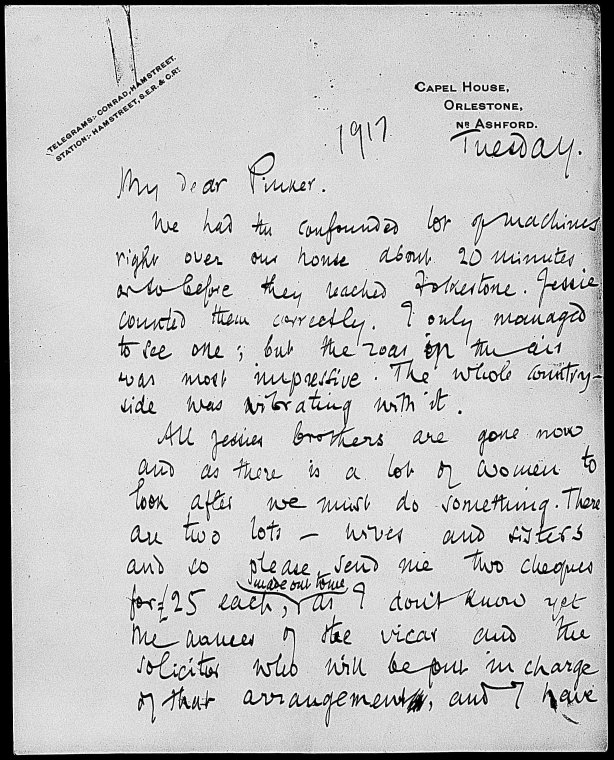 TELEGRAMS:- CONRAD, HAMSTREET.
STATION:- HAMSTREET, S.E.R. & C.RY.
CAPEL HOUSE,
ORLESTONE,
NR ASHFORD.
1917
Tuesday.
My dear Pinker.
We had the confounded lot of machines
right over our house about 20 minutes
or so before they reached Folkestone. Jessie
counted them correctly. I only managed
to see one; but the roar in the air
was most impressive. The whole country-
side was vibrating with it.
All Jessies brothers are gone now
and as there is a lot of women to
look after we must do something. There
are two lots – wives and sisters
and so please send me two cheques
made out to me
for £25 each, as I don't know yet
the names of the vicar and the
solicitor who will be put in charge
of that arrangement, and I have